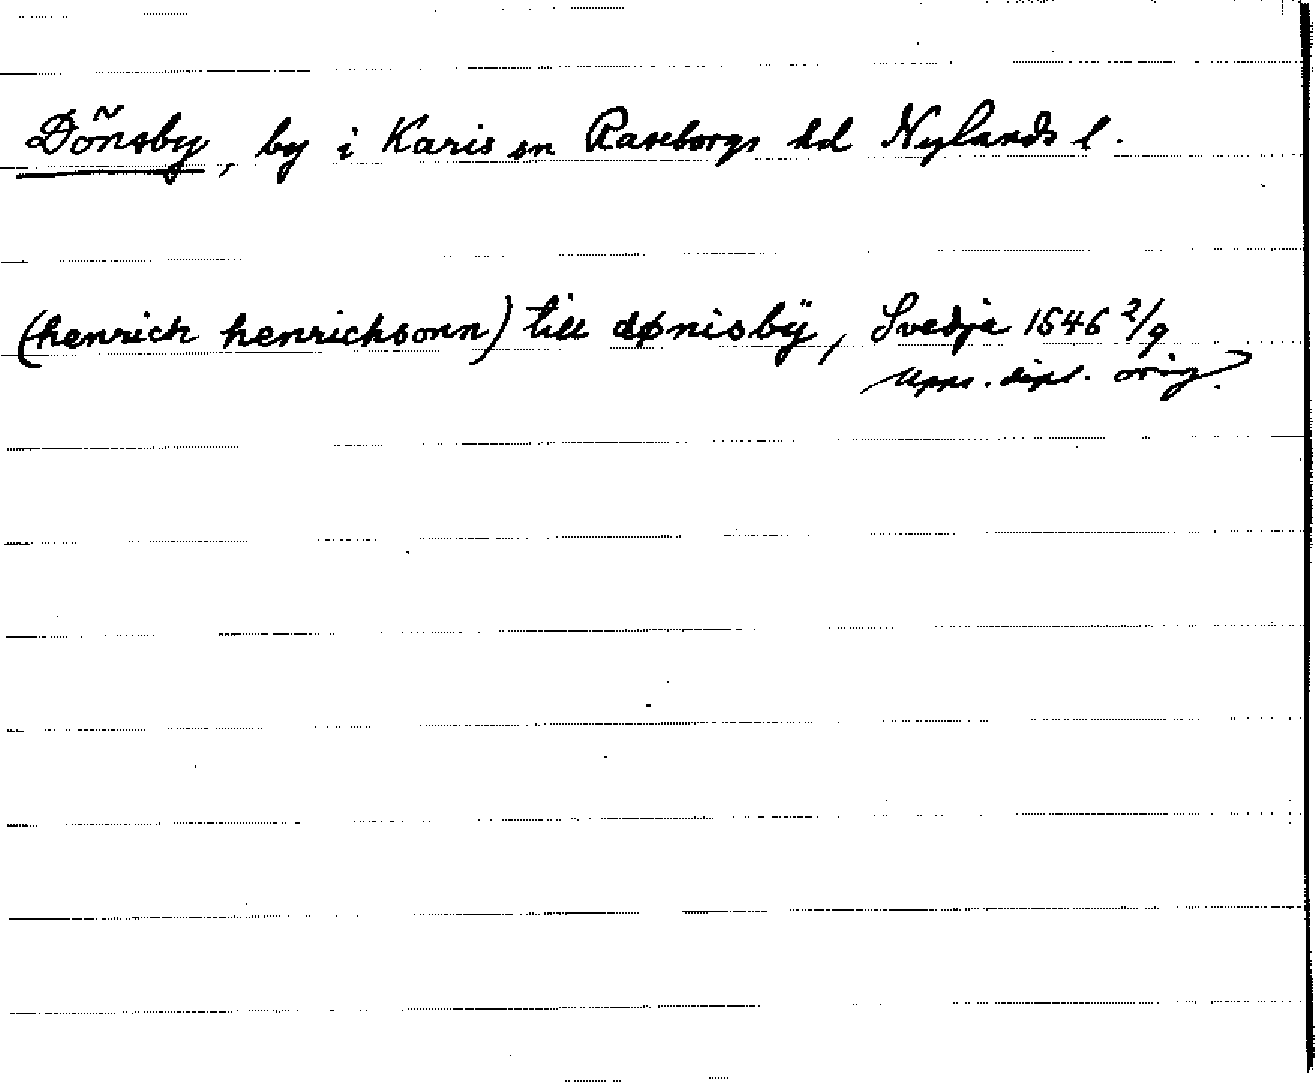 Dönsby, by i Karis sn Raseborgs hd Nylands l.
(henrich henrichsonn) till dønisbÿ, Svedja 1546 2/9
Upps. dipl. orig.